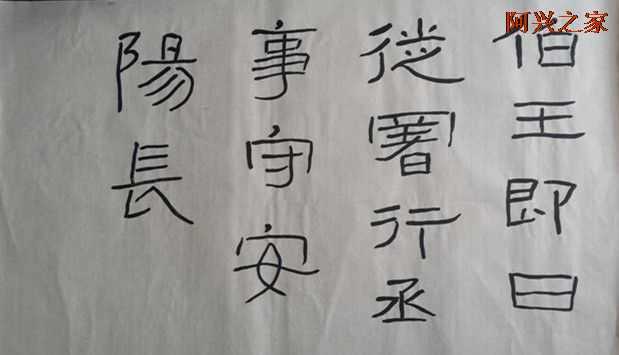 阿兴之家
伯王即日
從署行丞
事守安
陽長